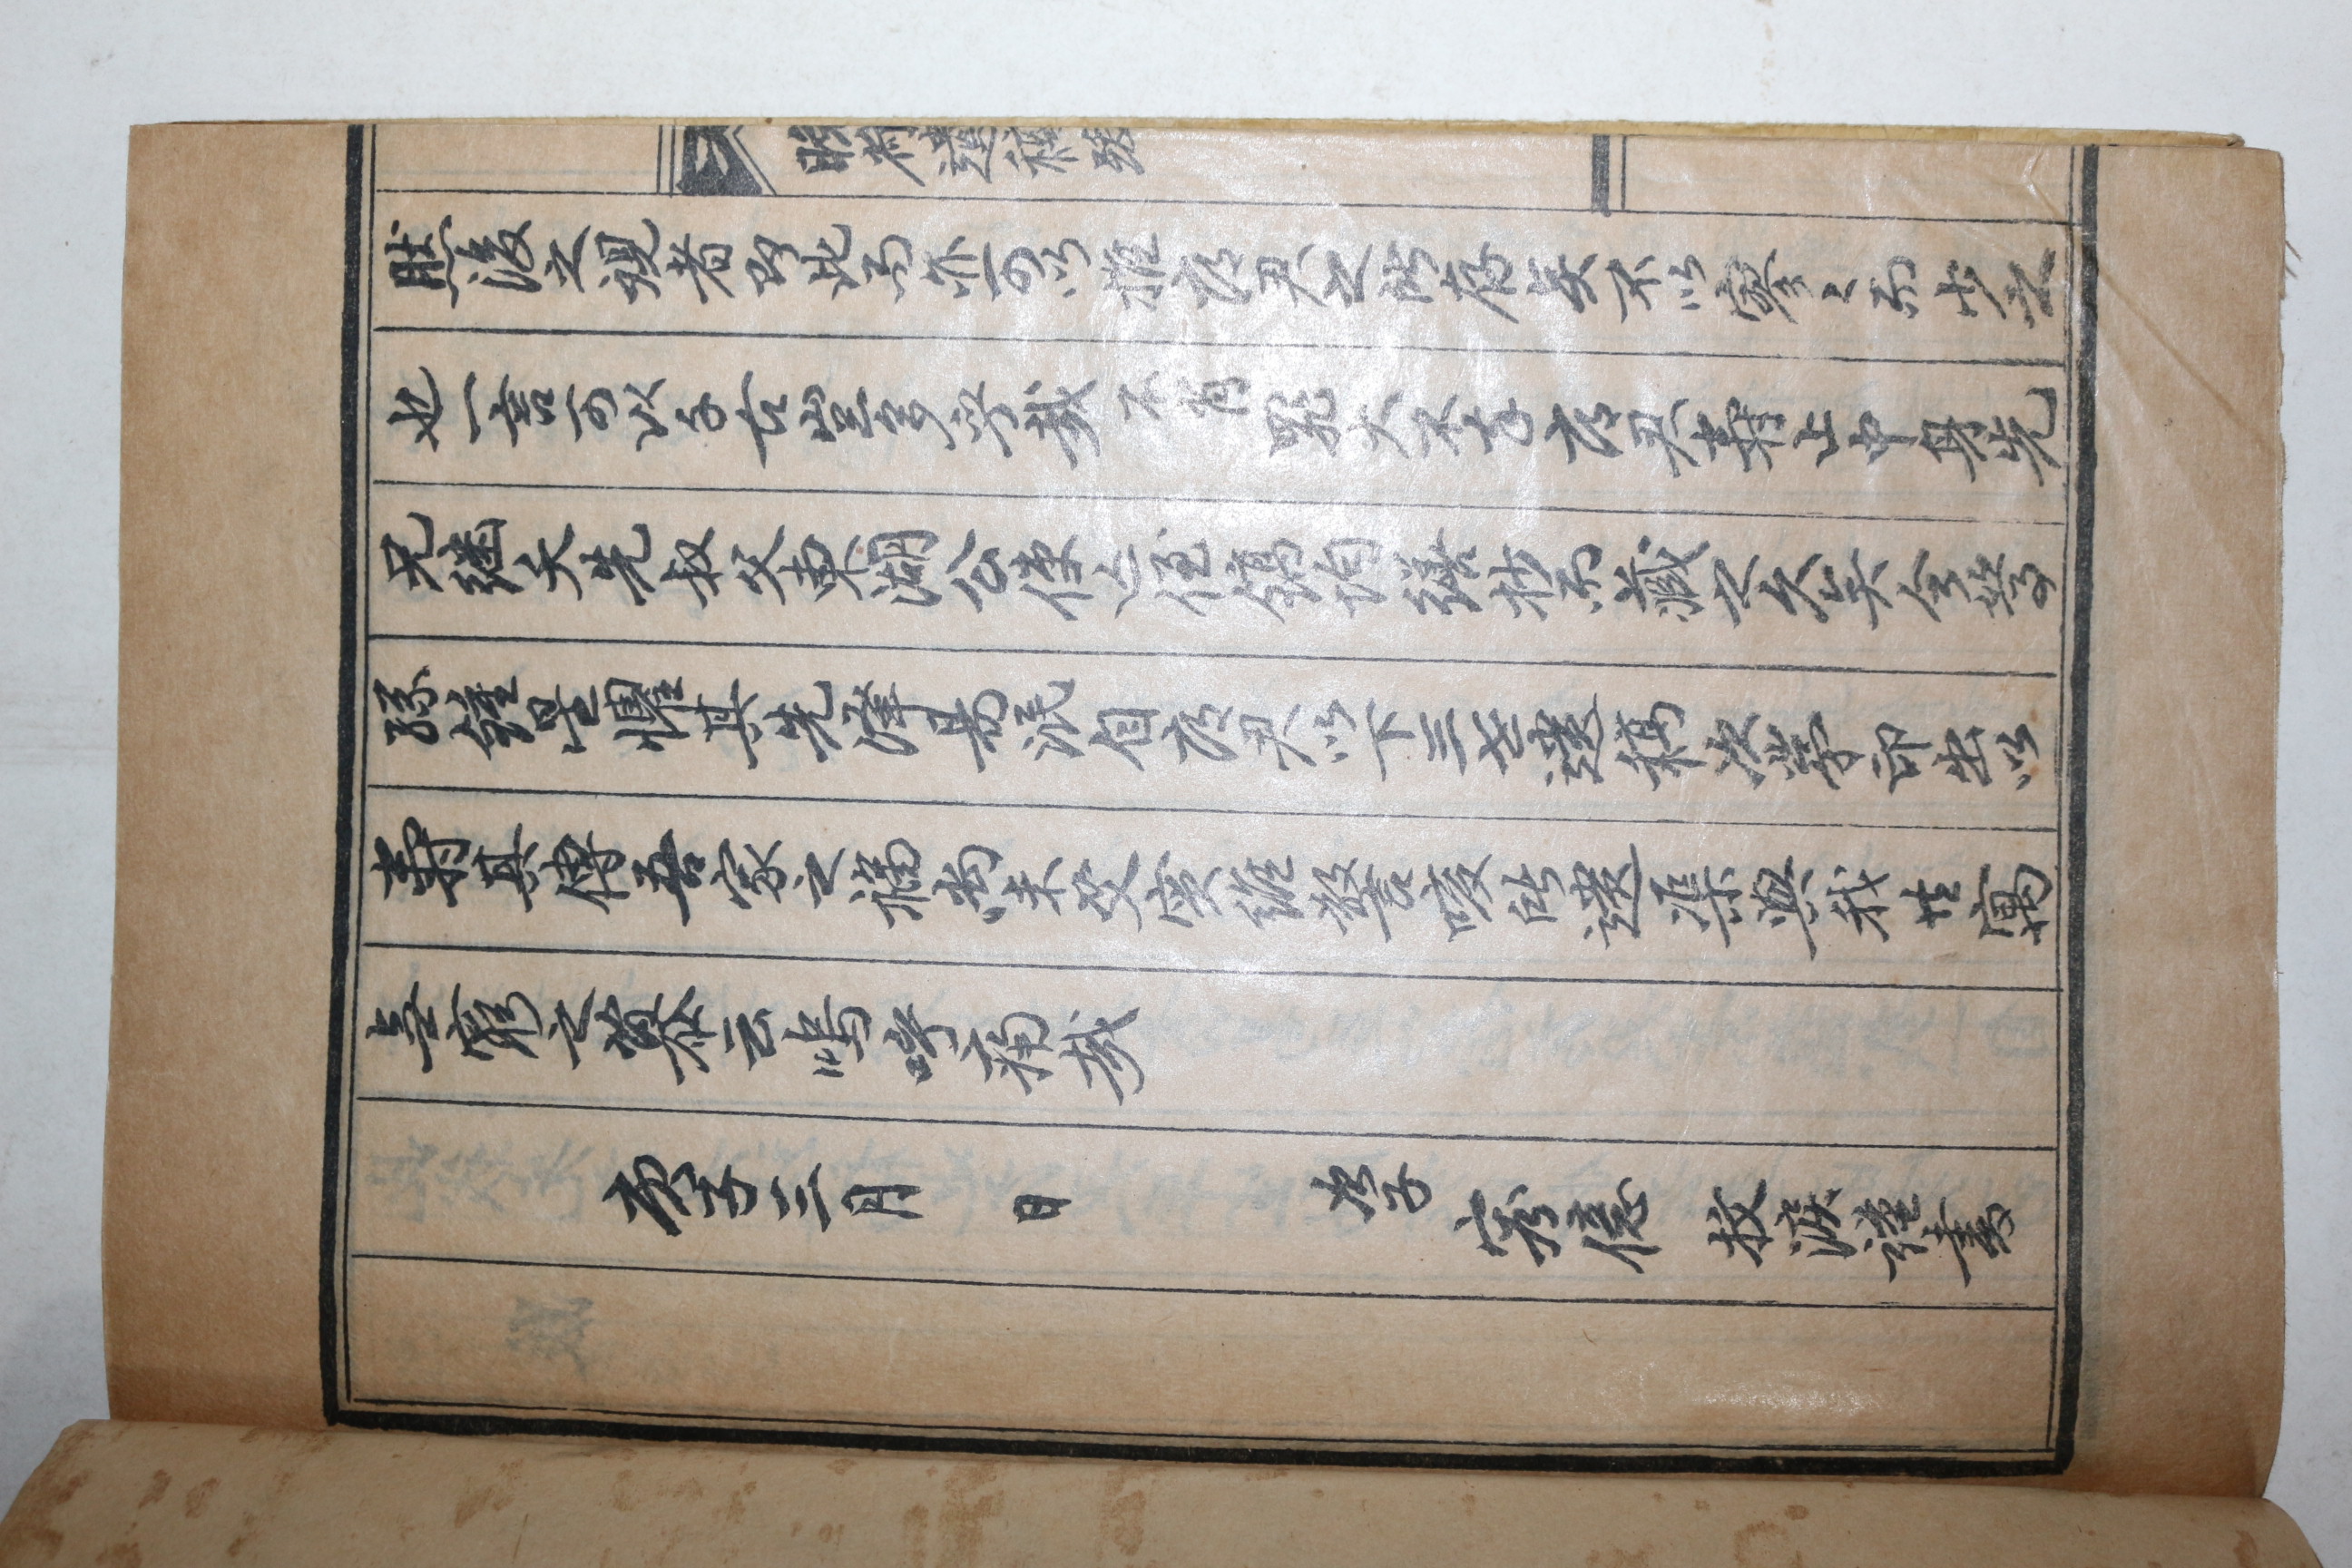 晚荷遺稿跋
然後之覌者即此而亦可以推府君之所存矣不以寥々而少之
也一言可以千古豈多乎哉不肖罪大不天府君壽止中身先
兄継夭先叔父東湖公使亡侄鎬均繕抄而藏之久矣今䓁
孫鍾星懼其先澤易泯自府君以下三世遺稿次苐印出以
壽其傳吾家之禍尚未艾実維警咳所遺渠與我共寓
無窮之慕云嗚呼痛哉
庚子三月 日 次子 容億 抆淚謹書